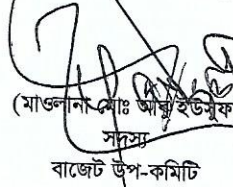 (মাওলানা মোঃ আবু ইউসুফ
সদস্য
বাজেট উপ-কমিটি